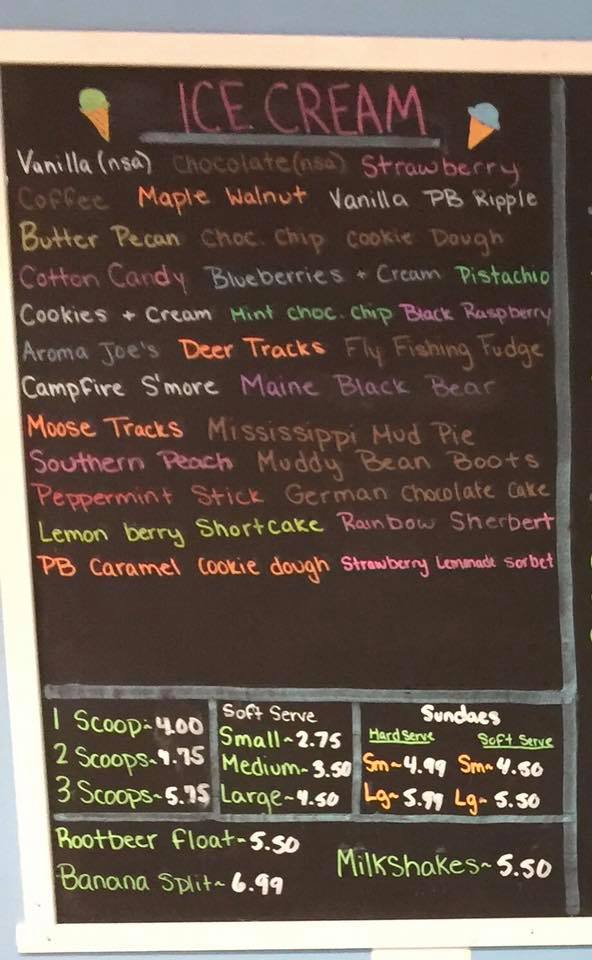 ICE CREAM
Vanilla (nsa) Chocolate (nsa) Strawberry
Coffee Maple Walnut Vanilla PB Ripple
Butter Pecan Choc. Chip Cookie Dough
Cotton Candy Blueberries + Cream Pistachio
Cookies + Cream Mint choc. chip Black Raspberry
Aroma Joe's Deer Tracks Fly Fishing Fudge
Campfire S'more Maine Black Bear
Moose Tracks Mississippi Mud Pie
Southern Peach Muddy Bean Boots
Peppermint Stick German Chocolate Cake
Lemon berry Shortcake Rainbow Sherbert
PB Caramel Cookie dough Strawberry Lemonade Sorbet
1 Scoop~4.00
2 Scoops~4.75
3 Scoops~5.75
Soft Serve
Small~2.75
Medium~3.50
Large~4.50
Sundaes
Hard serve Soft Serve
Sm~4.99 Sm~4.50
Lg~5.99 Lg~5.50
Rootbeer float~5.50
Banana Split~6.99
Milkshakes~5.50